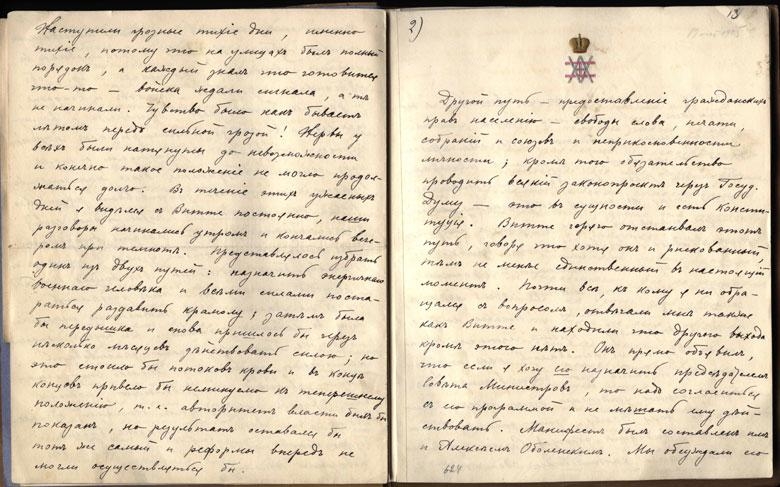 Наступили грозные тихіе дни, именно
тихіе, потому что на улицахъ былъ полный
порядокъ, а каждый зналъ что готовится
что-то — войска ждали сигнала, а тѣ
не начинали. Чувство было какъ бываетъ
лѣтомъ передъ сильной грозой! Нервы у
всѣхъ были натянуты до невозможности
и конечно такое положеніе не могло продол-
жаться долго. Въ теченіе этихъ ужасныхъ
дней я видѣлся съ Витте постоянно, наши
разговоры начинались утромъ и кончались вече-
ромъ при темнотѣ. Представлялось избрать
одинъ изъ двухъ путей: назначить энергичнаго
военнаго человѣка и всѣми силами поста-
раться раздавить крамолу; затѣмъ была
бы передышка и снова пришлось бы черезъ
нѣсколько мѣсяцевъ дѣйствовать силою; но
это стоило бы потоковъ крови и въ концѣ
концовъ привело бы неминуемо къ теперешнему
положенію, т. е. авторитетъ власти былъ бы
показанъ, но результатъ оставался бы
тотъ же самый и реформы впередъ не
могли осуществляться бы.
2)
13
Другой путь — предоставленіе гражданскихъ
правъ населенію — свободы слова, печати,
собраній и союзовъ и неприкосновенности
личности; кромѣ того обязательство
проводить всякій законопроектъ черезъ Госуд.
Думу — это въ сущности и есть консти-
туція. Витте горячо отстаивалъ этотъ
путь, говоря что хотя онъ и рискованный,
тѣмъ не менѣе единственный въ настоящій
моментъ. Почти всѣ, къ кому я ни обра-
щался съ вопросомъ, отвѣчали мнѣ также
какъ Витте и находили что другого выхода
кромѣ этого нѣтъ. Онъ прямо объявилъ,
что если я хочу его назначить предсѣдателемъ
Совѣта Министровъ, то надо согласиться
съ его программой и не мѣшать ему дѣй-
ствовать. Манифестъ былъ составленъ имъ
и Алексѣемъ Оболенскимъ. Мы обсуждали его
624